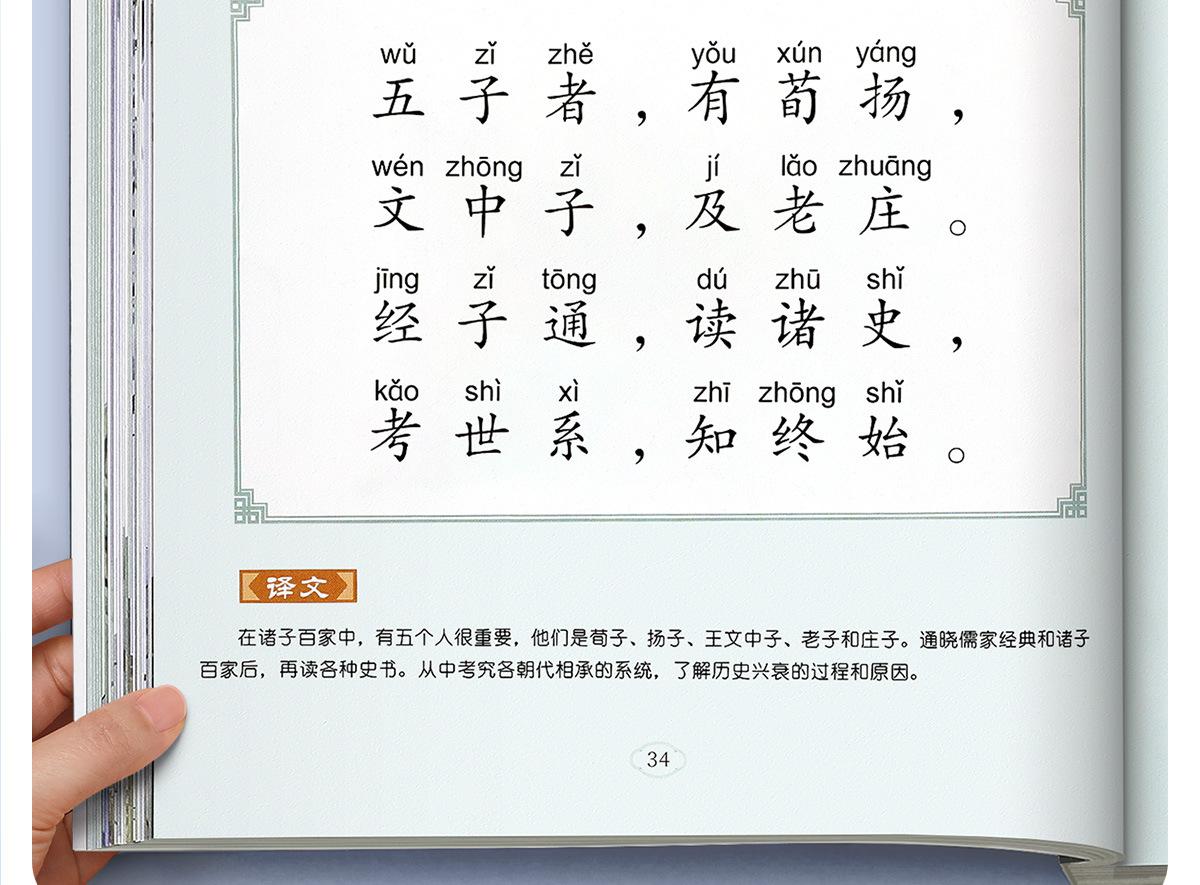 wǔ zǐ zhě yǒu xún yáng
五子者，有荀扬，
wén zhōng zǐ jí lǎo zhuāng
文中子，及老庄。
jīng zǐ tōng dú zhū shǐ
经子通，读诸史，
kǎo shì xì zhī zhōng shǐ
考世系，知终始。
译文
在诸子百家中，有五个人很重要，他们是荀子、扬子、王文中子、老子和庄子。通晓儒家经典和诸子
百家后，再读各种史书。从中考究各朝代相承的系统，了解历史兴衰的过程和原因。
34